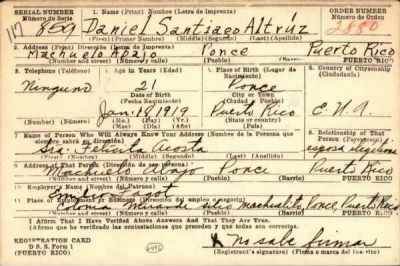 SERIAL NUMBER 1. Name (Print) Nombre (Letra de Imprenta) ORDER NUMBER
Número de Serie Número de Orden
117 859 Daniel Santiago Altrúz 2880
(First) (Primer Nombre) (Middle) (Segundo) (Last) (Apellido)
2. Address (Print) Dirección (Letra de Imprenta)
Machuelo Abajo Ponce Puerto Rico
Number and street Número y calle (Town) (Pueblo) (Barrio) PUERTO RICO
3. Telephone (Teléfono) 4. Age in Years (Edad) 5. Place of Birth (Lugar de Nacimiento) 6. Country of Citizenship (Ciudadanía)
Ninguno 21 Ponce
Date of Birth (Town or City)
(Fecha Nacimiento) (Ciudad o Pueblo)
Jan. 1 1919 Puerto Rico E.U.A
(Mo.) (Day) (Yr.) (Country)
(Mes) (Día) (Año) (País)
7. Name of Person Who Will Always Know Your Address (Nombre de la Persona que siempre sabrá su dirección) 8. Relationship of That Person
Sra. Felícita Acosta esposa
(First) (Nombre) (Middle) (Segundo) (Last) (Apellido)
9. Address of That Person (Dirección de esa persona)
Machuelo Abajo Ponce Puerto Rico
Number and street Número y calle (Town) (Pueblo) (Barrio) PUERTO RICO
10. Employer's Name (Nombre del Patrono)
11. Place of Employment or Business (Dirección del empleo o negocio)
Colonia Miranda sitio Machuelito, Ponce, Puerto Rico
Number and street Número y calle (Town) (Pueblo) (Barrio) PUERTO RICO
I Affirm That I Have Verified Above Answers And That They Are True.
(Afirmo que he verificado las contestaciones que preceden y que todas son correctas.)
REGISTRATION CARD
D S S. Form 1
(PUERTO RICO)
X No sabe firmar
Registrant's signature) (Firma o marca del inscrito)